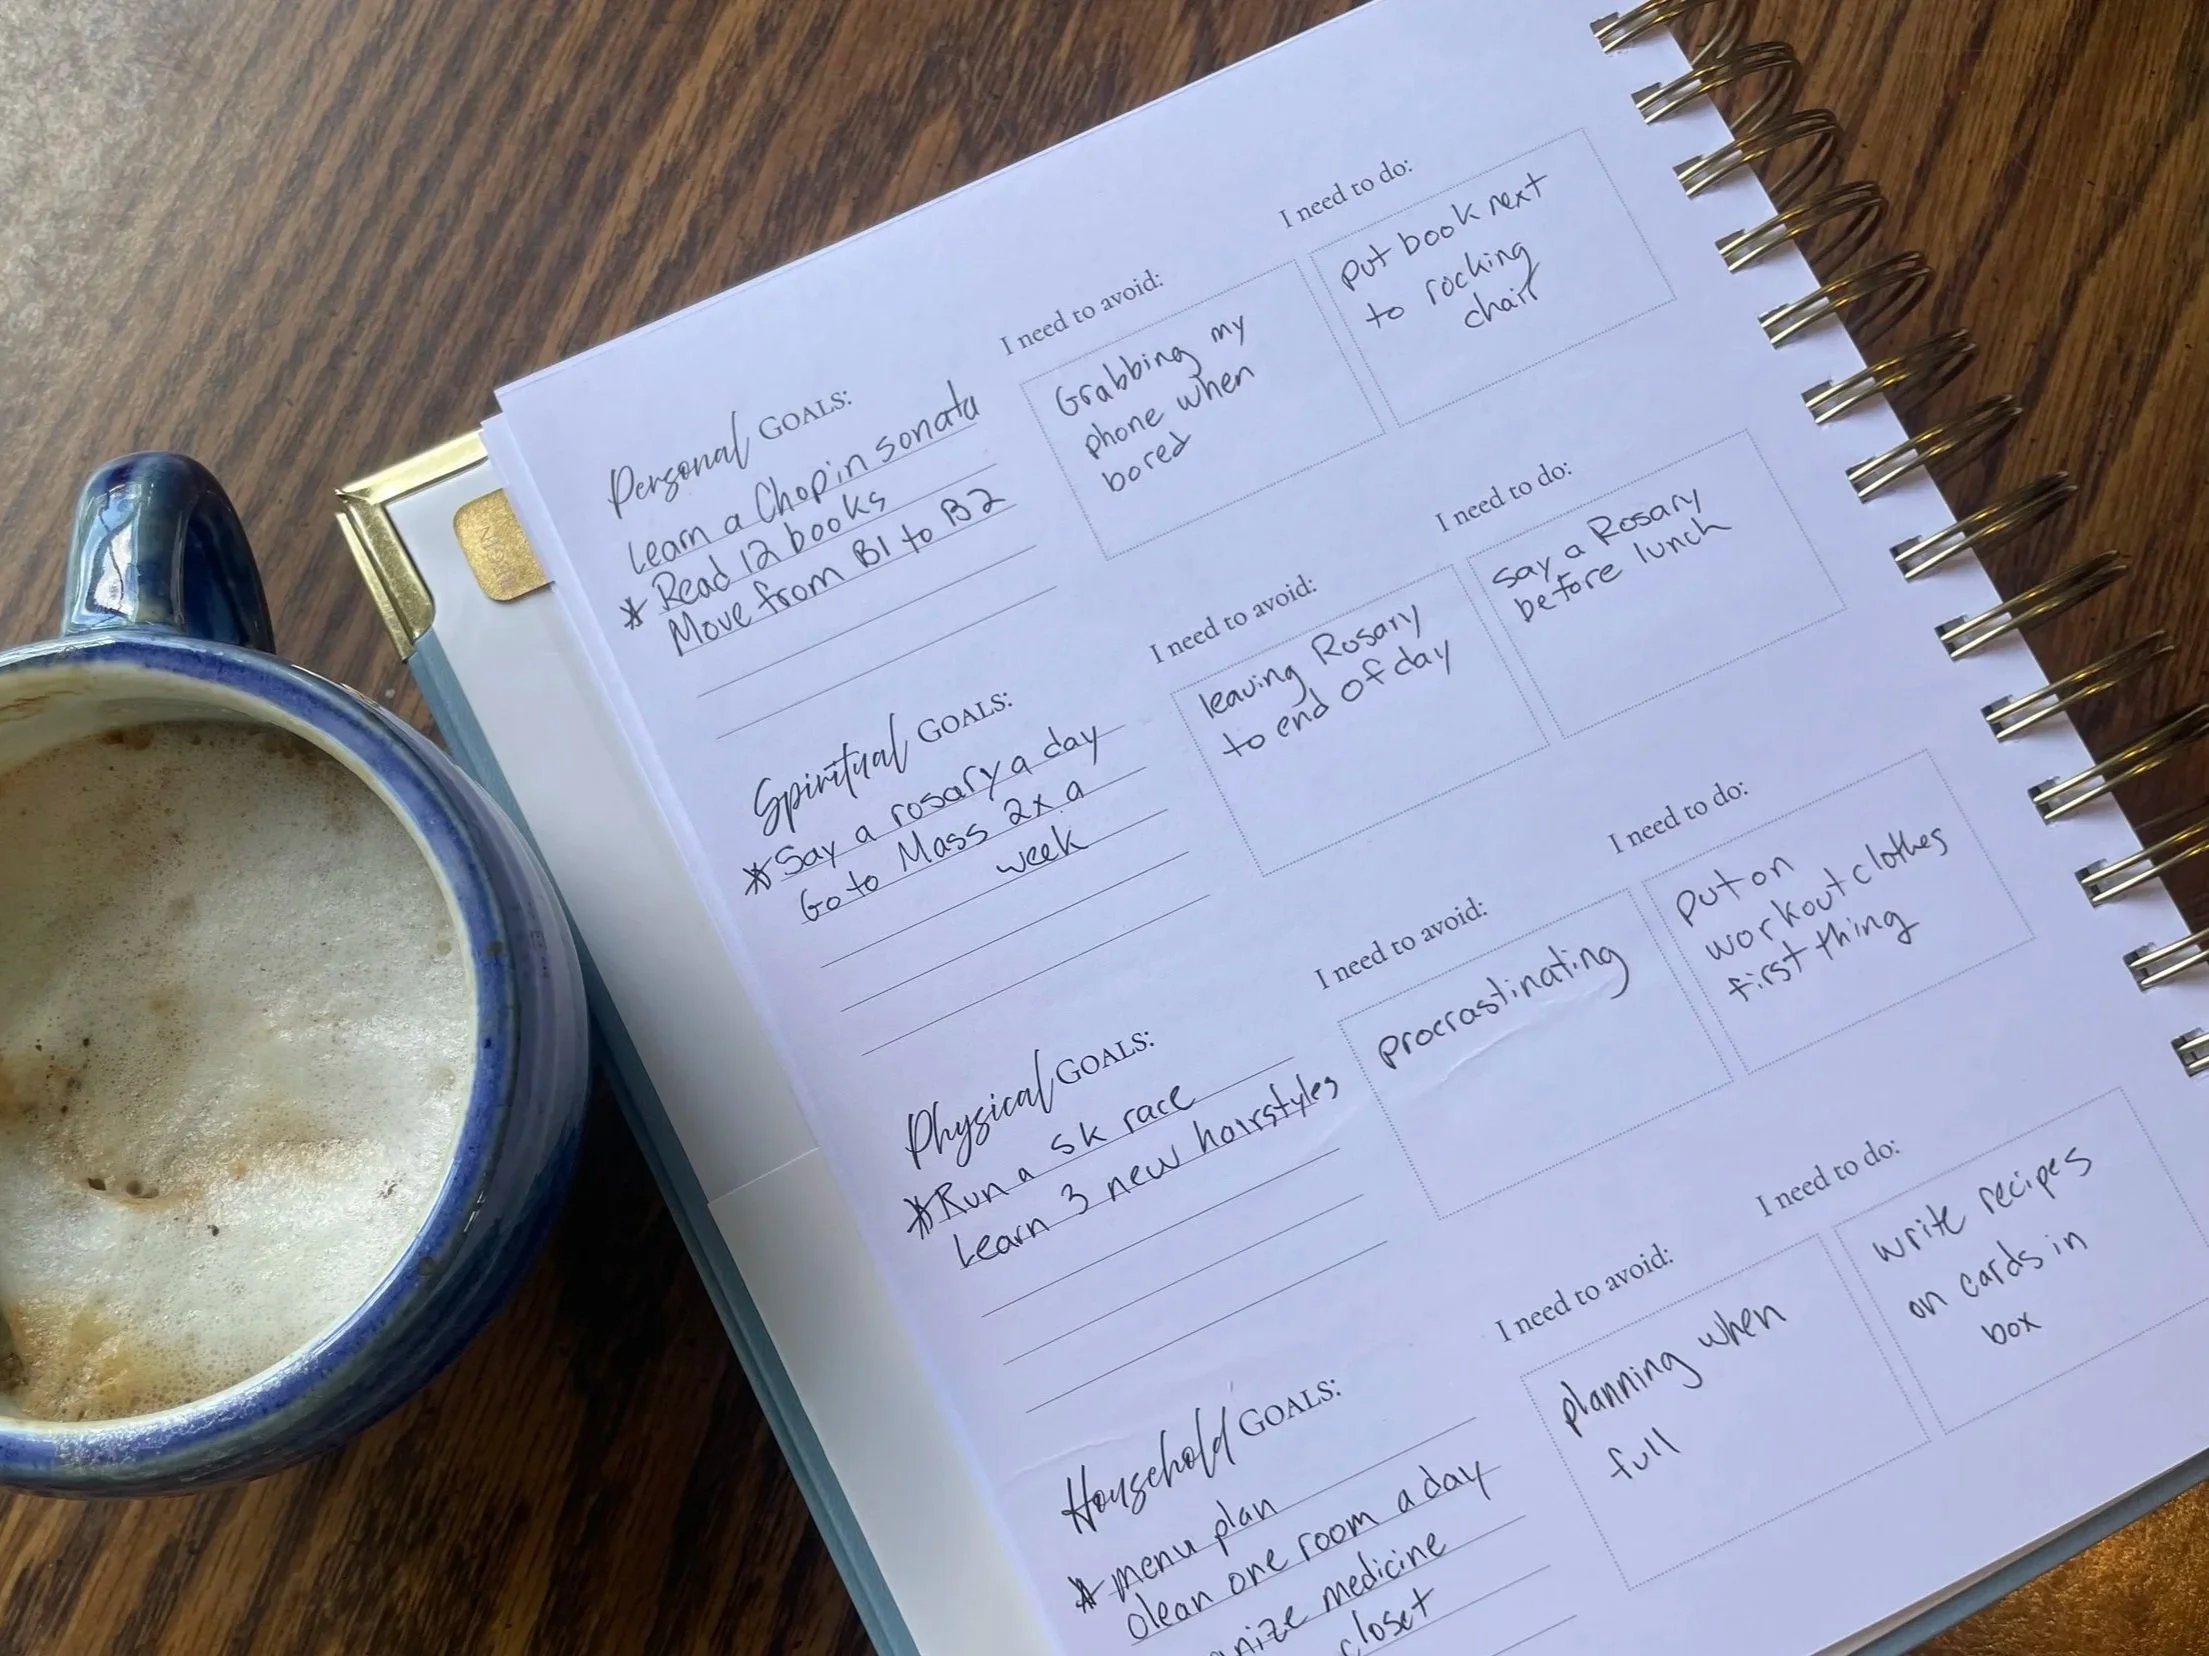 Personal GOALS:
Learn a Chopin sonata
* Read 12 books
Move from B1 to B2
I need to avoid:
Grabbing my
phone when
bored
I need to do:
put book next
to rocking
chair
Spiritual GOALS:
* Say a rosary a day
Go to Mass 2x a
week
I need to avoid:
leaving Rosary
to end of day
I need to do:
say a Rosary
before lunch
Physical GOALS:
* Run a 5k race
Learn 3 new hairstyles
I need to avoid:
procrastinating
I need to do:
put on
workout clothes
first thing
Household GOALS:
* menu plan
clean one room a day
medicine
closet
I need to avoid:
planning when
full
I need to do:
write recipes
on cards in
box